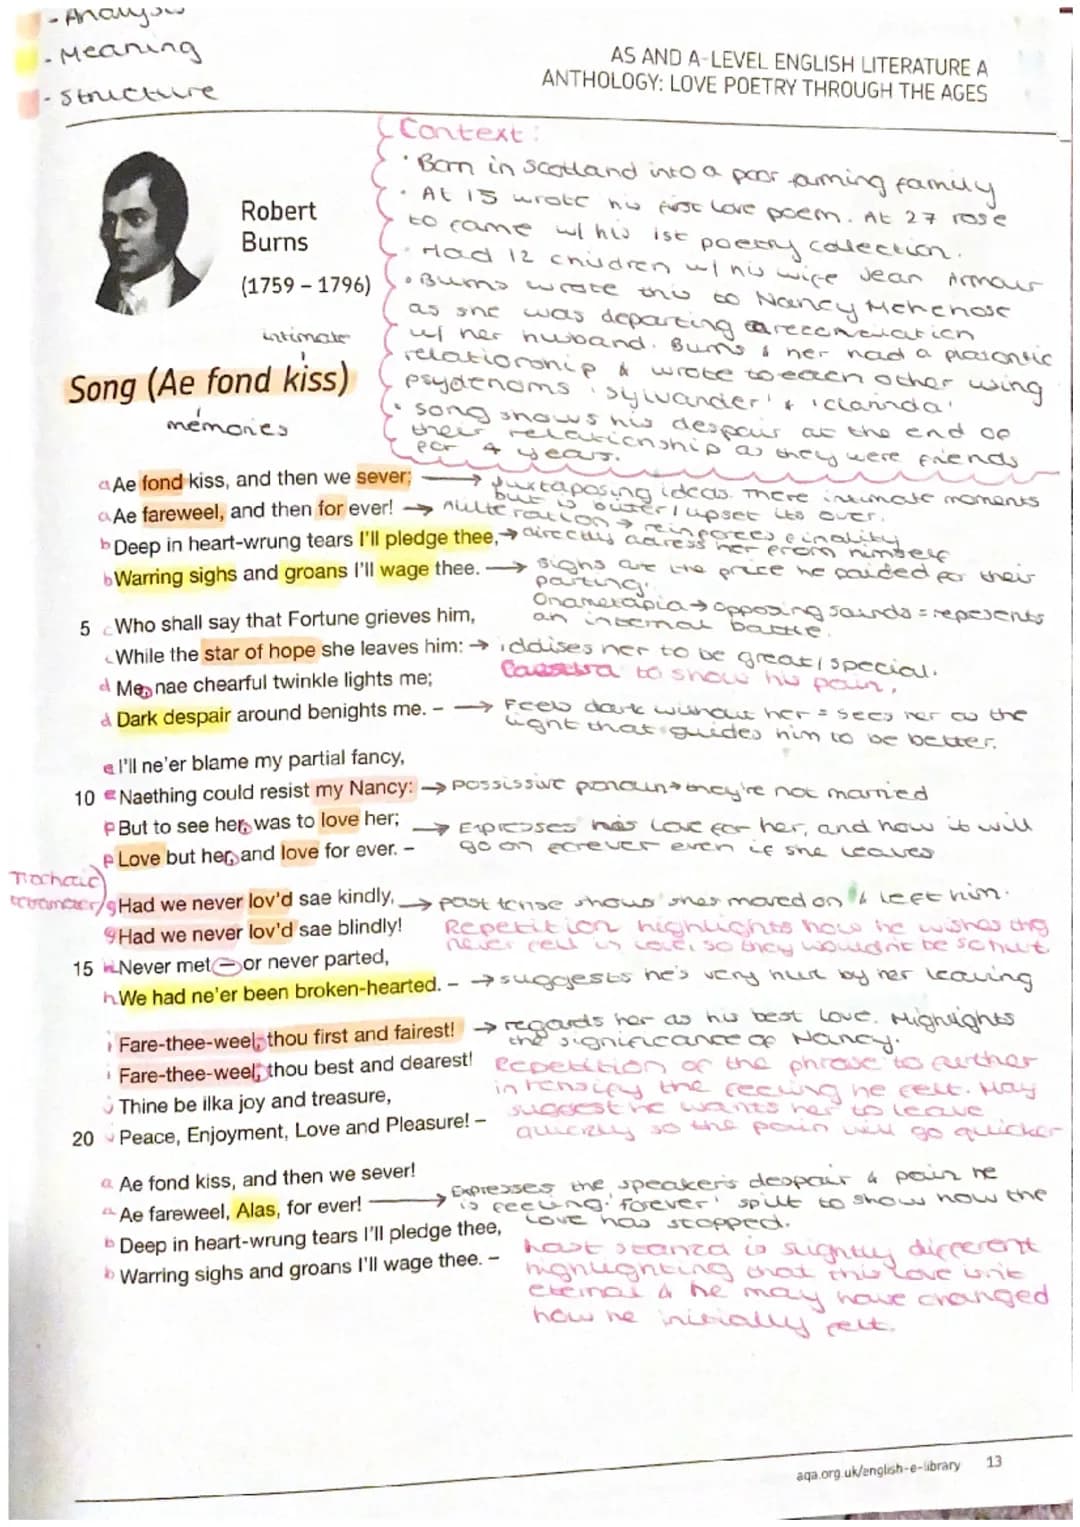 - Analysis
- Meaning
- Structure
AS AND A-LEVEL ENGLISH LITERATURE A
ANTHOLOGY: LOVE POETRY THROUGH THE AGES
Context:
· Born in Scotland into a poor farming family
· At 15 wrote his first love poem. At 27 rose
to fame w/ his 1st poetry collection.
· Had 12 children w/ his wife Jean Armour
· Burns wrote this to Nancy
as she was departing a reconciliation
w/ her husband. Burns & her had a platonic
relationship & wrote to each other using
'sylvander' & 'clarinda'
· song shows his despair at the end of
their relationship as they were friends
for 4 years.
Robert
Burns
(1759 – 1796)
intimate
Song (Ae fond kiss)
memories
a Ae fond kiss, and then we sever; → Juxtaposing ideas. There intimate moments
but is bitter/upset its over.
a Ae fareweel, and then for ever! → Aliteration → reinforces finality
b Deep in heart-wrung tears I'll pledge thee, → directly adress her from himself
b Warring sighs and groans I'll wage thee. → sighs are the price he paided for their
parting.
Onamatapia → opposing sounds = repesents
an internal battle.
5 c Who shall say that Fortune grieves him,
c While the star of hope she leaves him: → iddises her to be great/special.
d Me, nae chearful twinkle lights me; Caesura to show his pain.
d Dark despair around benights me. – → Feels dark without her = sees her as the
light that guides him to be better.
e I'll ne'er blame my partial fancy,
10 e Naething could resist my Nancy: → possissive pronoun → they're not married
f But to see her, was to love her;
→ Expresses his love for her, and how it will
go on forever even if she leaves
f Love but her, and love for ever. –
Trochaic
tetrameter
g Had we never lov'd sae kindly, → past tense shows shes moved on & left him.
g Had we never lov'd sae blindly! Repetition highlights how he wishes they
never fell in love, so they wouldn't be so hurt
15 h Never met – or never parted,
h We had ne'er been broken-hearted. – → suggests he's very hurt by her leaving
i Fare-thee-weel, thou first and fairest! → regards her as his best love. Highlights
the significance of Nancy.
i Fare-thee-weel, thou best and dearest! Repetition of the phrase to further
intensify the feeling he felt. May
suggest he wants her to leave
quickly so the pain will go quicker
j Thine be ilka joy and treasure,
20 j Peace, Enjoyment, Love and Pleasure! –
a Ae fond kiss, and then we sever!
a Ae fareweel, Alas, for ever! → Expresses the speakers despair & pain he
is feeling. 'forever' split to show how the
love has stopped.
b Deep in heart-wrung tears I'll pledge thee,
b Warring sighs and groans I'll wage thee. –
Last stanza is slightly different
highlighting that this love isn't
eternal & he may have changed
how he initially felt.
aqa.org.uk/english-e-library 13